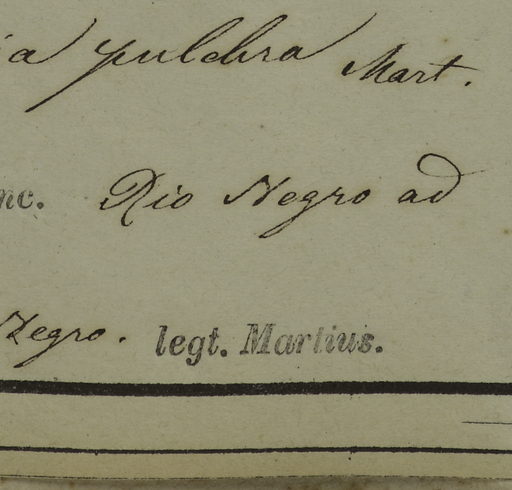 ia pulchra Mart.
nc. Rio Negro ad
Negro. legt. Martius.